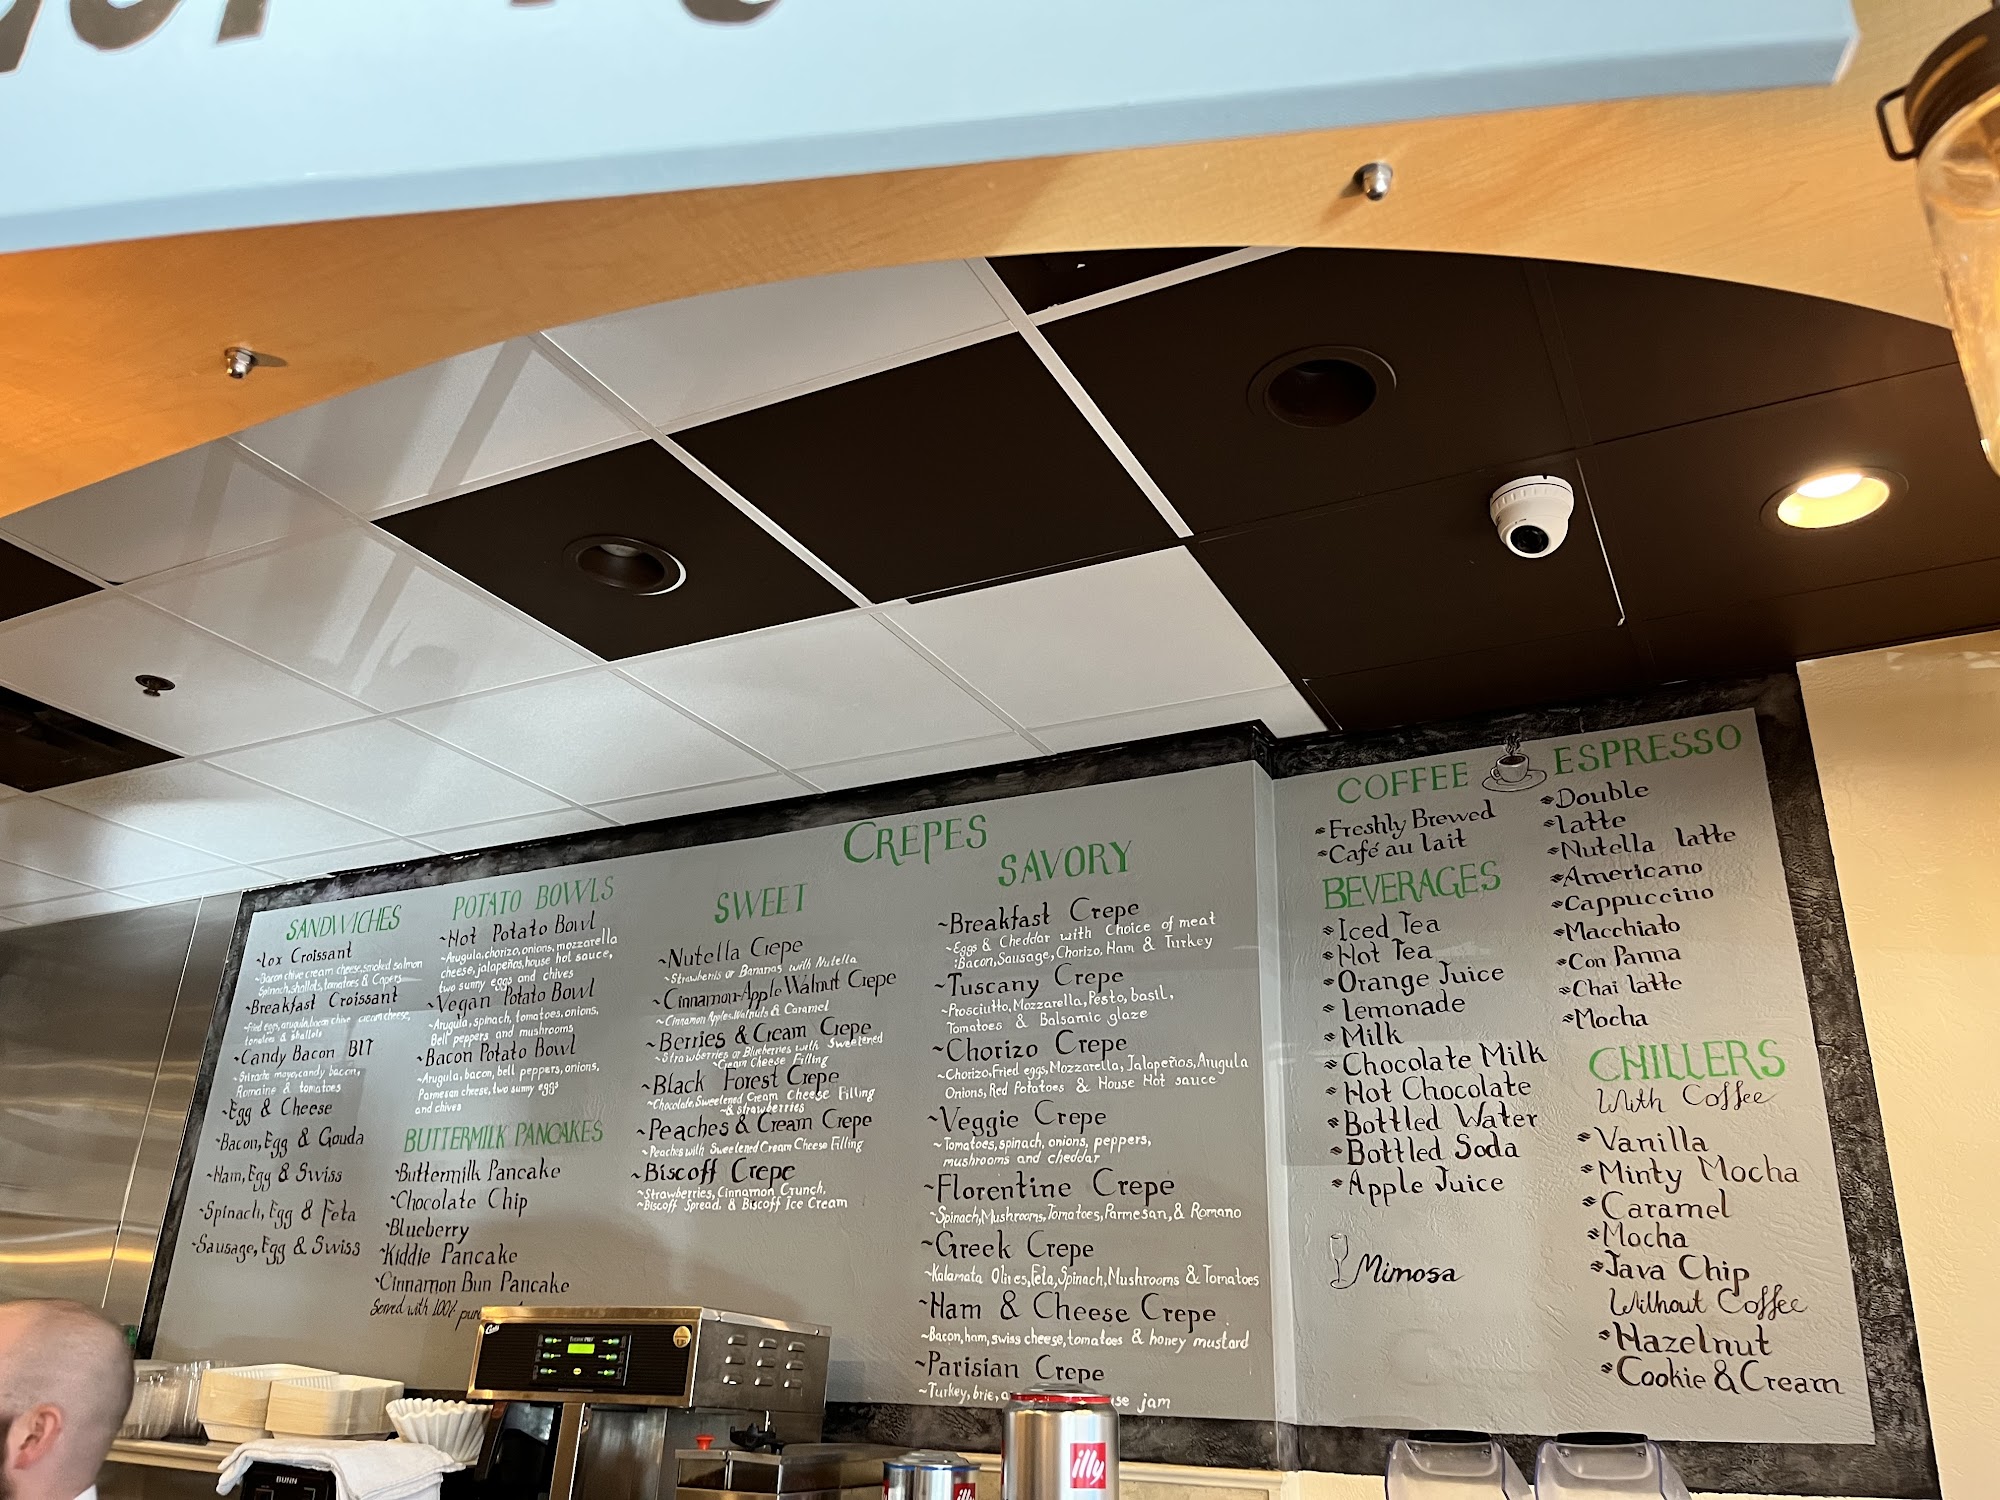 SANDWICHES
~Lox Croissant
~Bacon chive cream cheese, smoked salmon
Spinach, shallots, tomatoes & Capers
~Breakfast Croissant
~Fried eggs, arugula, bacon chive cream cheese,
tomatoes & shallots
~Candy Bacon BLT
~Sriracha mayo, candy bacon,
Romaine & tomatoes
~Egg & Cheese
~Bacon, Egg & Gouda
~Ham, Egg & Swiss
~Spinach, Egg & Feta
~Sausage, Egg & Swiss
POTATO BOWLS
~Hot Potato Bowl
~Arugula, chorizo, onions, mozzarella
cheese, jalapeños, house hot sauce,
two sunny eggs and chives
~Vegan Potato Bowl
~Arugula, spinach, tomatoes, onions,
Bell peppers and mushrooms
~Bacon Potato Bowl
~Arugula, bacon, bell peppers, onions,
Parmesan cheese, two sunny eggs
and chives
BUTTERMILK PANCAKES
~Buttermilk Pancake
~Chocolate Chip
~Blueberry
~Kiddie Pancake
~Cinnamon Bun Pancake
Served with 100% pure
CREPES
SWEET
~Nutella Crepe
~Strawberris or Bananas with Nutella
~Cinnamon-Apple Walnut Crepe
~Cinnamon Apples, Walnuts & Caramel
~Berries & Cream Crepe
~Strawberries or Blueberries with Sweetened
~Cream Cheese Filling
~Black Forest Crepe
~Chocolate, Sweetened Cream Cheese Filling
~& strawberries
~Peaches & Cream Crepe
~Peaches with Sweetened Cream Cheese Filling
~Biscoff Crepe
~Strawberries, Cinnamon Crunch,
~Biscoff Spread, & Biscoff Ice Cream
SAVORY
~Breakfast Crepe
~Eggs & Cheddar with Choice of meat
:Bacon, Sausage, Chorizo, Ham & Turkey
~Tuscany Crepe
~Prosciutto, Mozzarella, Pesto, basil,
Tomatoes & Balsamic glaze
~Chorizo Crepe
~Chorizo, Fried eggs, Mozzarella, Jalapeños, Arugula
Onions, Red Potatoes & House Hot sauce
~Veggie Crepe
~Tomatoes, spinach, onions, peppers,
mushrooms and cheddar
~Florentine Crepe
~Spinach, Mushrooms, Tomatoes, Parmesan, & Romano
~Greek Crepe
~Kalamata Olives, Feta, Spinach, Mushrooms & Tomatoes
~Ham & Cheese Crepe
~Bacon, ham, swiss cheese, tomatoes & honey mustard
~Parisian Crepe
~Turkey, brie, jam
COFFEE
Freshly Brewed
Café au lait
BEVERAGES
Iced Tea
Hot Tea
Orange Juice
Lemonade
Milk
Chocolate Milk
Hot Chocolate
Bottled Water
Bottled Soda
Apple Juice
Mimosa
ESPRESSO
Double
Latte
Nutella latte
Americano
Cappuccino
Macchiato
Con Panna
Chai latte
Mocha
CHILLERS
With Coffee
Vanilla
Minty Mocha
Caramel
Mocha
Java Chip
Without Coffee
Hazelnut
Cookie & Cream
BUNN
illy